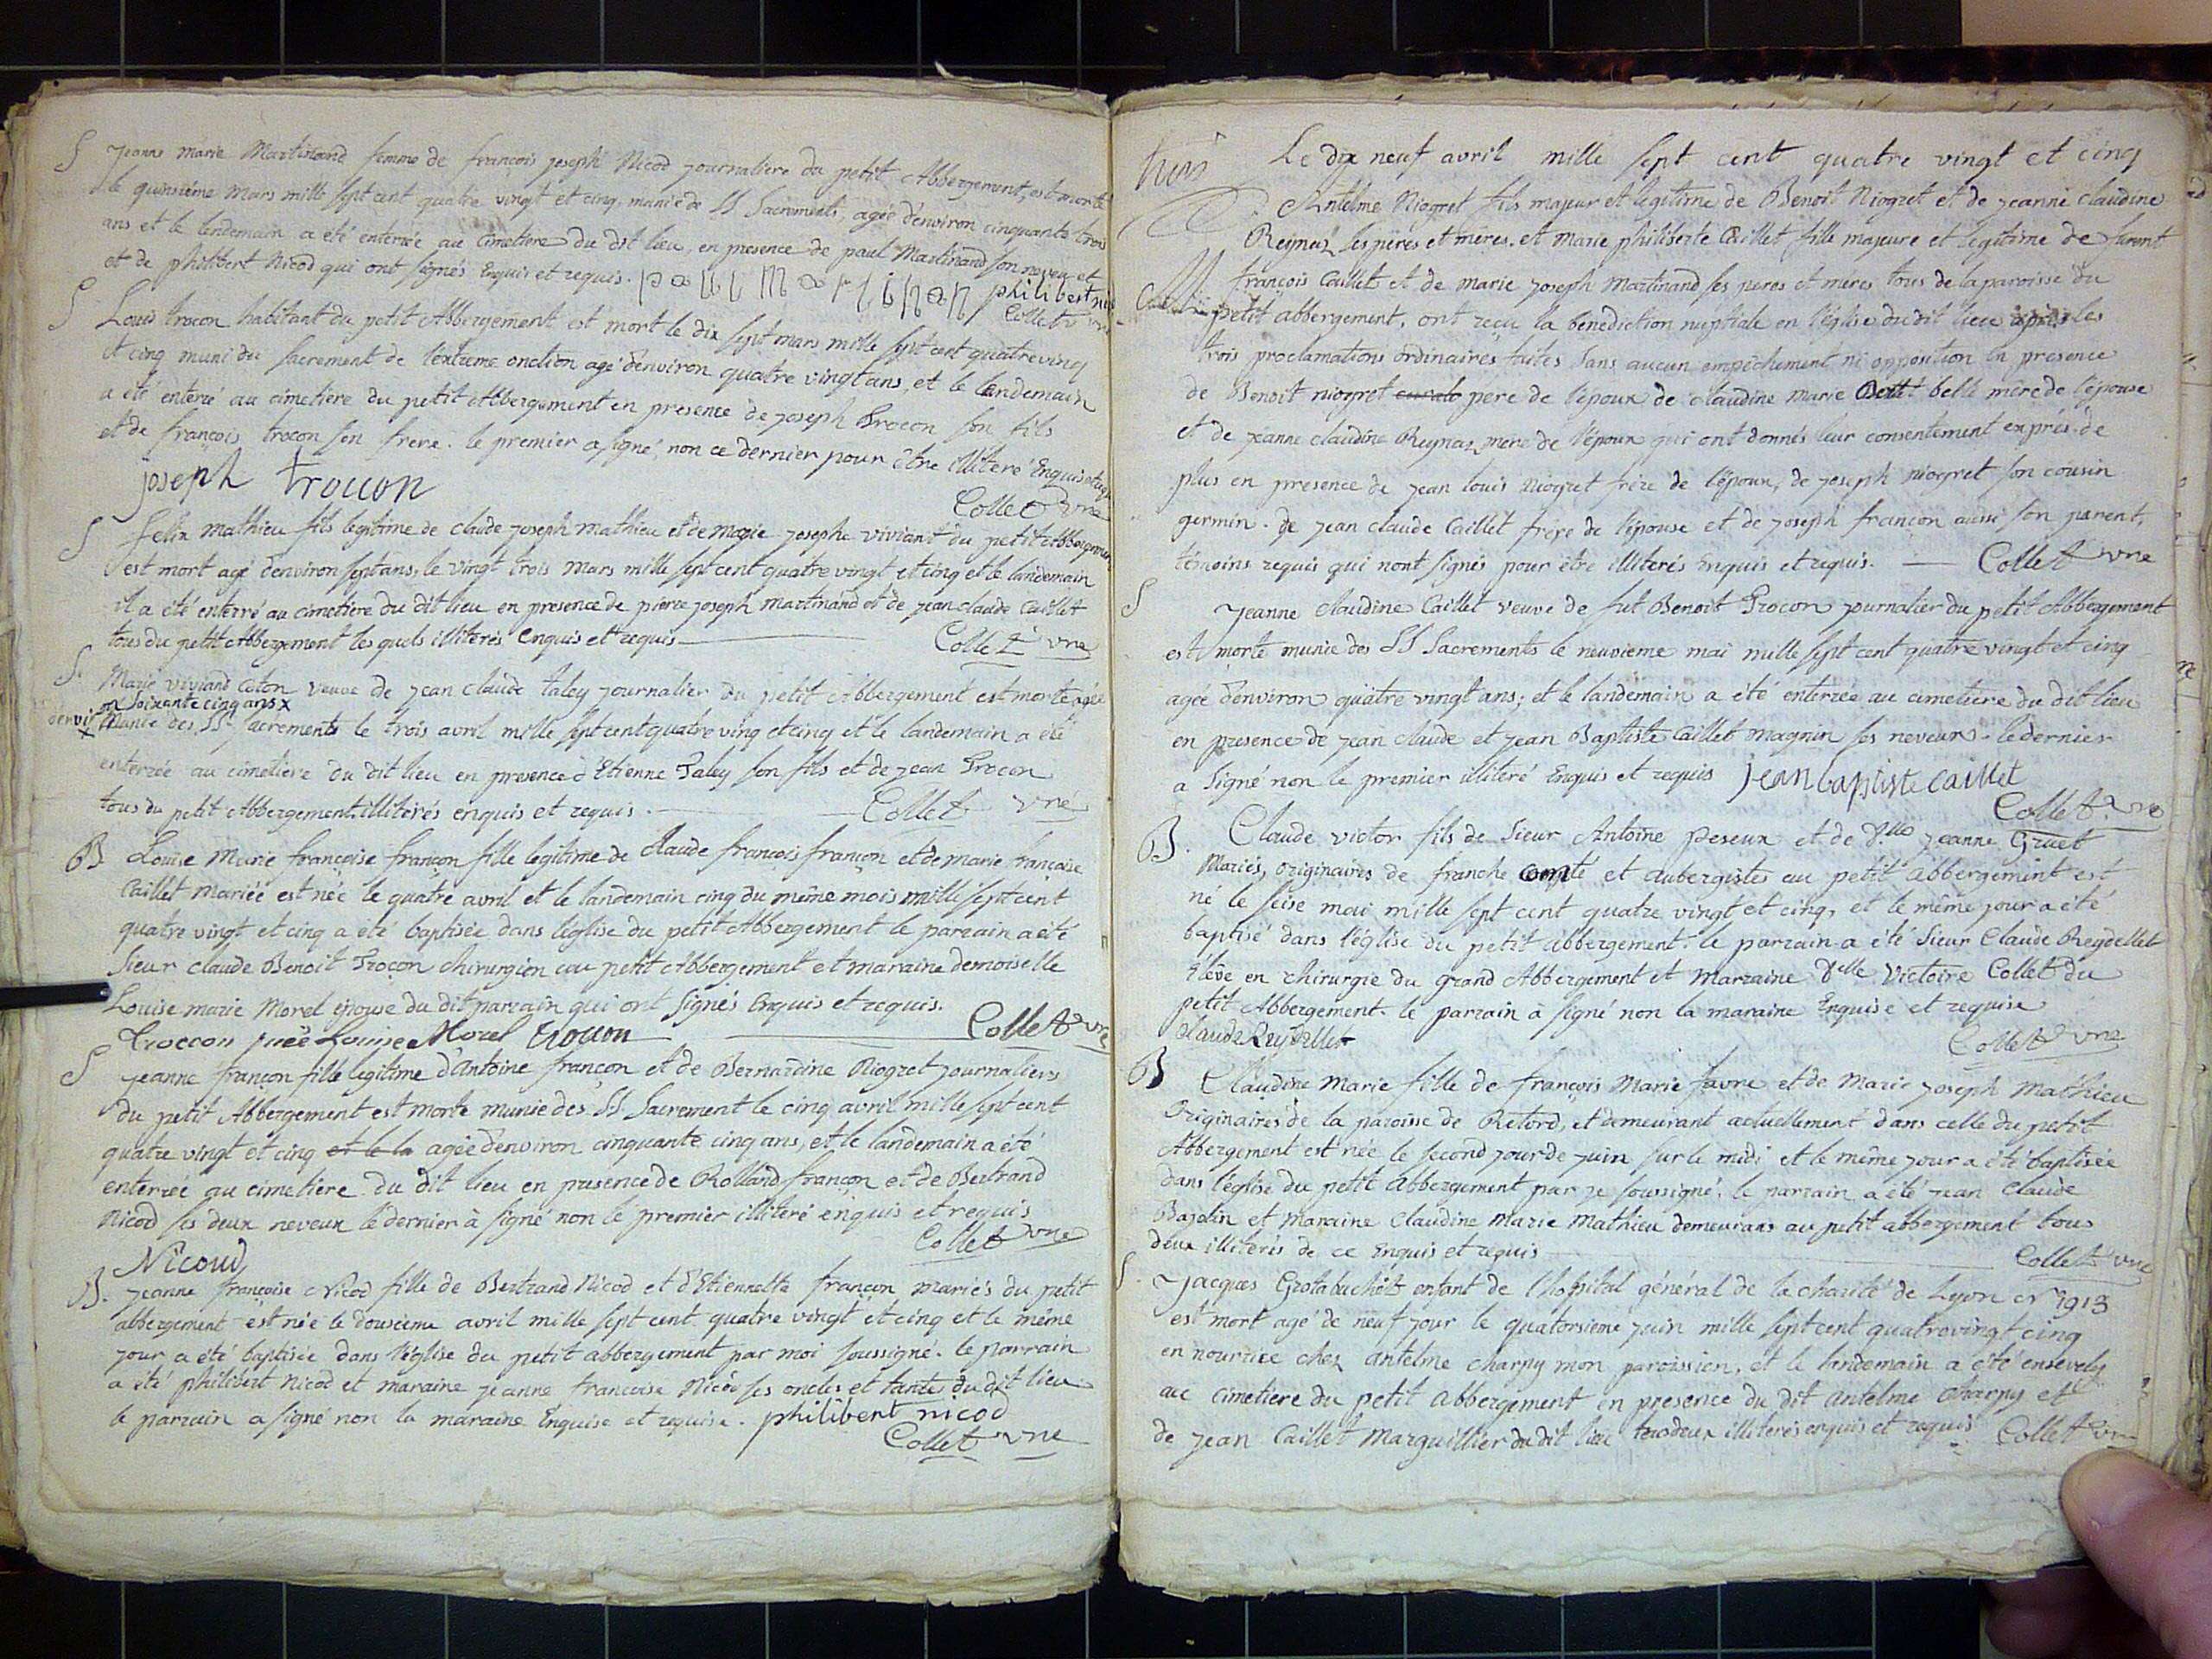 S Jeanne marie Martinand femme de françois joseph Nicod journaliere du petit Abbergement, est morte
le quinsieme Mars mille sept cent quatre vingt et cinq, munie de SS Sacrements, agée d'environ cinquante trois
ans et le lendemain a été enterrée au cimetiere du dit lieu, en presence de paul Martinand son neveu et
et de philibert Nicod qui ont signés Enquis et requis. paul martinan philibert nicod
Collet vre
S Louis trocon habitant du petit Abbergement est mort le dix sept mars mille sept cent quatre vingt
et cinq muni du sacrement de l'extreme onction agé d'environ quatre vingt ans, et le lendemain
a été enterré au cimetiere du petit Abbergement en presence de joseph Trocon son fils
et de françois trocon son frere. le premier a signé, non ce dernier pour être illiteré Enquis et requis
joseph troccon
Collet vre
S felix mathieu fils legitime de claude joseph mathieu et de marie josephe viviant du petit Abbergement
est mort agé d'environ sept ans, le vingt trois mars mille sept cent quatre vingt et cinq et le landemain
il a été enterré au cimetiere du dit lieu en presence de pierre joseph martinand et de jean claude Caillet
tous du petit Abbergement les quels illiterés enquis et requis
Collet vre
S. Marie viviand Coton veuve de jean claude taley journalier du petit Abbergement est morte agée
denvir on Soixante cinq ans x
x Munie des SSts sacrements le trois avril mille sept cent quatre vingt et cinq et le landemain a été
enterrée au cimetiere du dit lieu en presence d'Etienne Taley son fils et de jean Trocon
tous du petit Abbergement illiterés enquis et requis. Collet vre
B Louise Marie françoise françon fille legitime de Claude françois françon et de marie françoise
Caillet Mariée est née le quatre avril et le landemain cinq du même mois mille sept cent
quatre vingt et cinq a été baptisée dans l'église du petit Abbergement le parrain a été
Sieur claude Benoit Troçon chirurgien au petit Abbergement et maraine demoiselle
Louise marie Morel épouse du dit parrain qui ont signés Enquis et requis.
Troccon Louise Morel trocon Collet vre
S jeanne françon fille legitime d'Antoine françon et de Bernardine Niogret journaliers
du petit Abbergement est morte munie des SS. Sacrement le cinq avril mille sept cent
quatre vingt et cinq et le la agée d'environ cinquante cinq ans, et le landemain a été
enterrée au cimetiere du dit lieu en presence de Rolland françon et de Bertrand
Nicod ses deux neveux le dernier à signé non le premier illiteré enquis et requis
Collet vre
Nicoud
B. jeanne françoise Nicod fille de Bertrand Nicod et d'Etiennette françon mariés du petit
abbergement est née le dousieme avril mille sept cent quatre vingt et cinq et le même
jour a été baptisée dans l'église du petit abbergement par moi soussigné. le parrain
a été philibert Nicod et maraine jeanne francoise Nicod ses oncles et tante du dit lieu
le parrain a signé non la maraine Enquise et requise. philibert nicod
Collet vre
Le dix neuf avril mille sept cent quatre vingt et cinq
Antelme Niogret fils majeur et legitime de Benoit Niogret et de jeanne claudine
Reynaz ses péres et méres, et Marie philiberte Caillet fille majeure et legitime de furent
françois Caillet et de marie joseph Martinand ses peres et méres tous de la paroisse du
petit abbergement, ont reçu la benediction nuptiale en l'église du dit lieu après les
trois proclamations ordinaires faites sans aucun empêchement ni opposition en presence
de Benoit niogret pere de l'époux de claudine marie belle mére de l'épouse
et de jeanne claudine Reynaz mére de l'époux qui ont donnés leur consentement exprés. de
plus en presence de jean louis Niogret frére de l'époux, de joseph niogret son cousin
germin. de jean claude Caillet frére de l'épouse et de joseph françon aussi son parent,
témoins requis qui nont signés pour être illiterés Enquis et requis. Collet vre
S Jeanne Claudine Caillet veuve de fut Benoit Trocon journalier du petit Abbergement
est morte munie des SS Sacrements le neuvieme mai mille sept cent quatre vingt et cinq
agée d'environ quatre vingt ans; et le landemain a été enterrée au cimetiere du dit lieu
en presence de jean claude et jean Baptiste Caillet magnin ses neveux. le dernier
a signé non le premier illiteré Enquis et requis jean baptiste caillet
Collet vre
B. Claude victor fils de Sieur Antoine Peseux et de Dlle jeanne Gruet
Mariés, originaires de franche comté et aubergistes au petit abbergement est
né le seise mai mille sept cent quatre vingt et cinq, et le même jour a été
baptisé dans l'église du petit abbergement. le parrain a été Sieur Claude Reydellet
Elève en chirurgie du grand Abbergement et Marraine Delle Victoire Collet du
petit Abbergement. le parrain à signé non la maraine Enquise et requise
Claude Reydellet
Collet vre
B Claudine Marie fille de françois Marie favre et de Marie joseph Mathieu
Originaires de la paroisse de Retord, et demeurant actuellement dans celle du petit
Abbergement est née le second jour de juin sur le midi et le même jour a été baptisée
dans l'église du petit abbergement par je soussigné. le parrain a été jean claude
Bajolin et maraine Claudine Marie Mathieu demeurans au petit abbergement tous
deux illiterés de ce Enquis et requis Collet vre
S. Jacques Grotabuchet enfant de l'hopital général de la charité de Lyon no 1913
est mort agé de neuf jour le quatorsieme juin mille sept cent quatre vingt cinq
en nourrice chez antelme charpy mon paroissien, et le landemain a été ensevely
au cimetiere du petit abbergement en presence du dit Antelme Charpy et
de jean Caillet Marguillier du dit lieu tous deux illiterés enquis et requis Collet vre